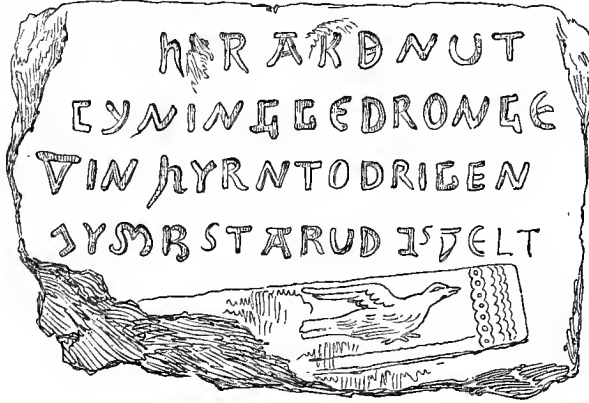 hARAKÐNUT
CYNINGGEDRONGE
VIN hYRNTODRIGEN
⁊YMBSTARUD ⁊SVELT